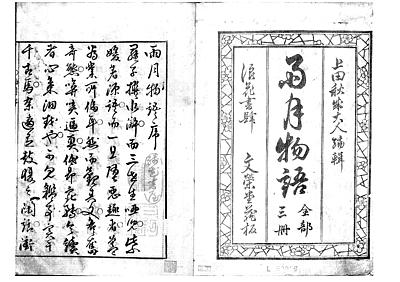 上田秋成大人編輯
雨月物語
全部
三冊
浪花書肆
文榮堂藏板
雨月物語序
羅子撰水滸而三世生唖兒紫
媛著源語而一旦墮惡趣者蓋
爲業所偪耳然而觀其文各奮
奇態揜哢逼真低昂宛轉令讀
者心氣洞越也可見鑑事實于
千古焉余適有鼓腹之閑話衝